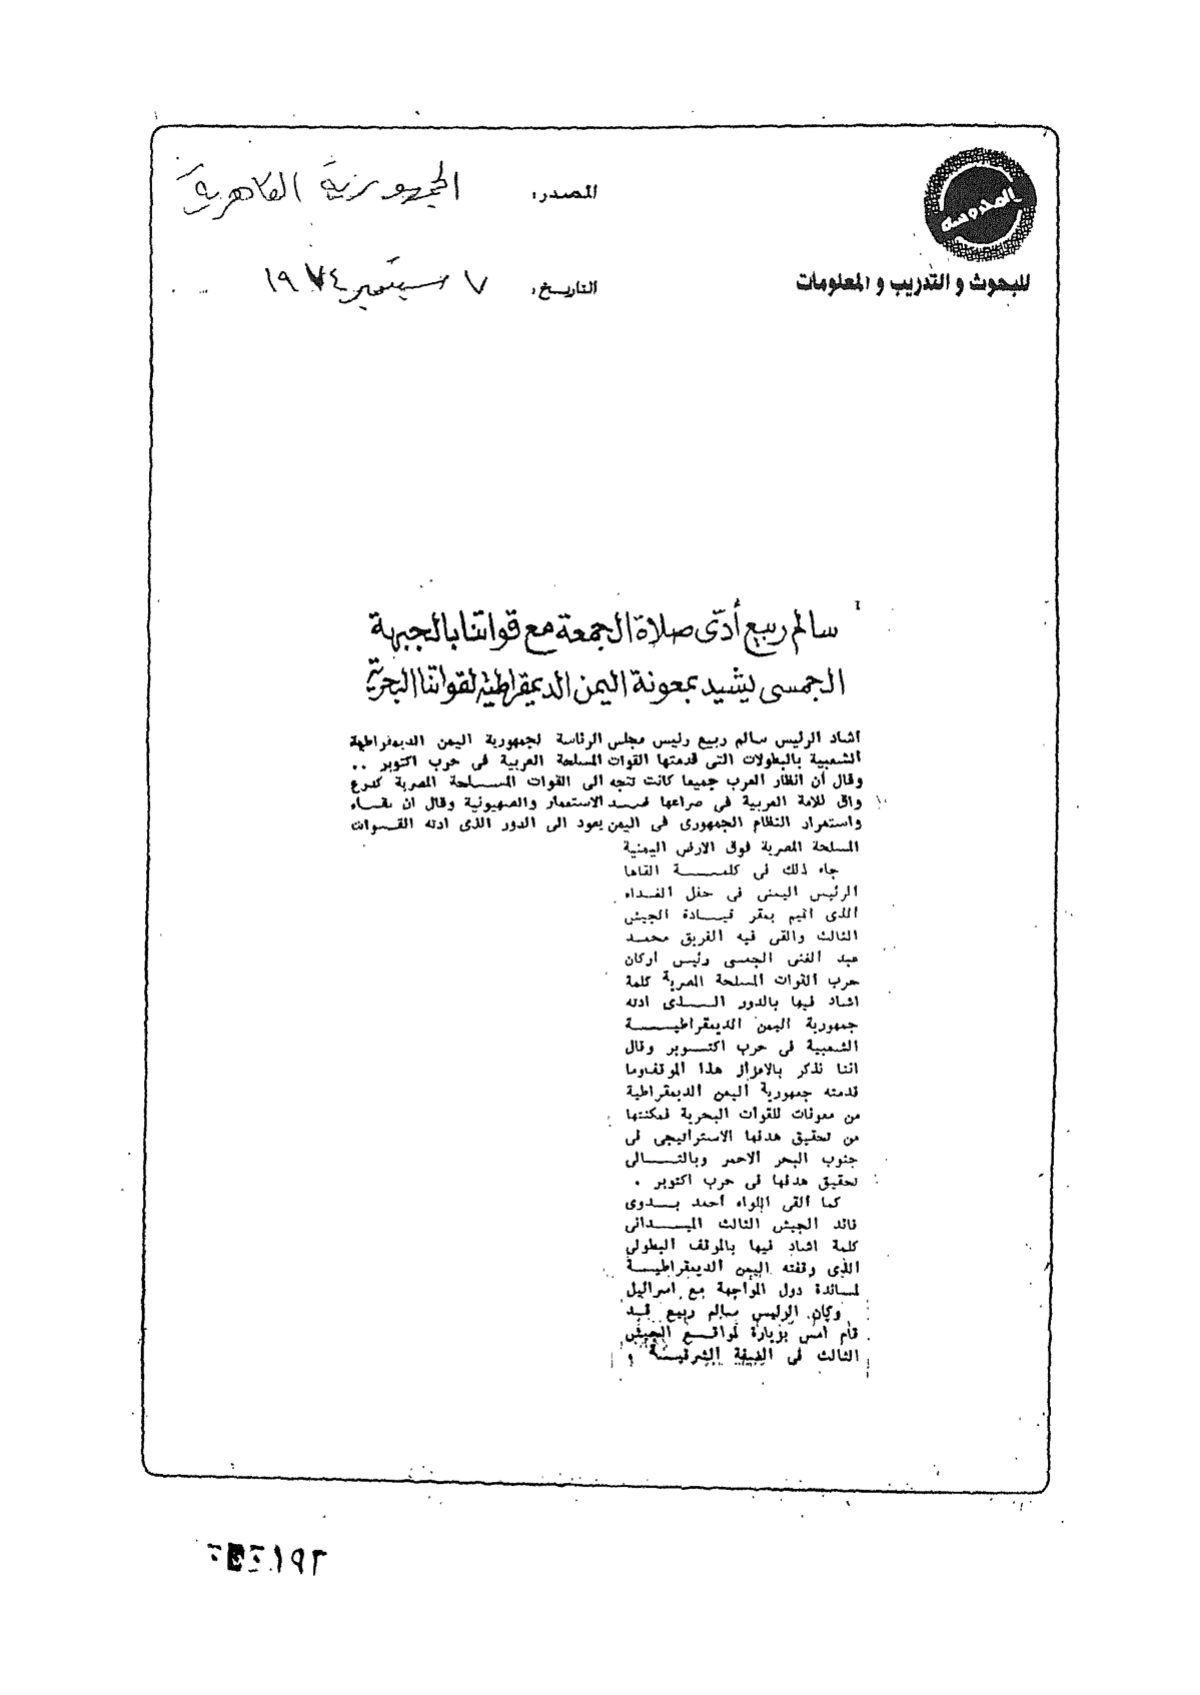 المحروسة
للبحوث و التدريب و المعلومات
المصدر: الجمهورية القاهرية
التاريخ: ٧ سبتمبر ١٩٧٤
سالم ربيع أدّى صلاة الجمعة مع قواتنا بالجبهة
الجمسى يشيد بمعونة اليمن الديمقراطية لقواتنا البحرية
اشاد الرئيس سالم ربيع رئيس مجلس الرئاسة لجمهورية اليمن الديمقراطية
الشعبية بالبطولات التى قدمتها القوات المسلحة العربية فى حرب اكتوبر ..
وقال أن انظار العرب جميعا كانت تتجه الى القوات المسلحة المصرية كدرع
واق للامة العربية فى صراعها ضد الاستعمار والصهيونية وقال ان بقاء
واستمرار النظام الجمهورى فى اليمن يعود الى الدور الذى ادته القوات
المسلحة المصرية فوق الارض اليمنية
جاء ذلك فى كلمة القاها
الرئيس اليمنى فى حفل الغداء
الذى اقيم بمقر قيادة الجيش
الثالث والقى فيه الفريق محمد
عبد الغنى الجمسى رئيس اركان
حرب القوات المسلحة المصرية كلمة
اشاد فيها بالدور الذى ادته
جمهورية اليمن الديمقراطية
الشعبية فى حرب اكتوبر وقال
اننا نذكر بالاعزاز هذا الموقف وما
قدمته جمهورية اليمن الديمقراطية
من معونات للقوات البحرية فمكنتها
من تحقيق هدفها الاستراتيجى فى
جنوب البحر الاحمر وبالتالى
تحقيق هدفها فى حرب اكتوبر .
كما القى اللواء أحمد بدوى
قائد الجيش الثالث الميدانى
كلمة اشاد فيها بالموقف البطولى
الذى وقفته اليمن الديمقراطية
لمساندة دول المواجهة مع اسرائيل
وكان الرئيس سالم ربيع قد
قام أمس بزيارة لمواقع الجيش
الثالث فى الضفة الشرقية و